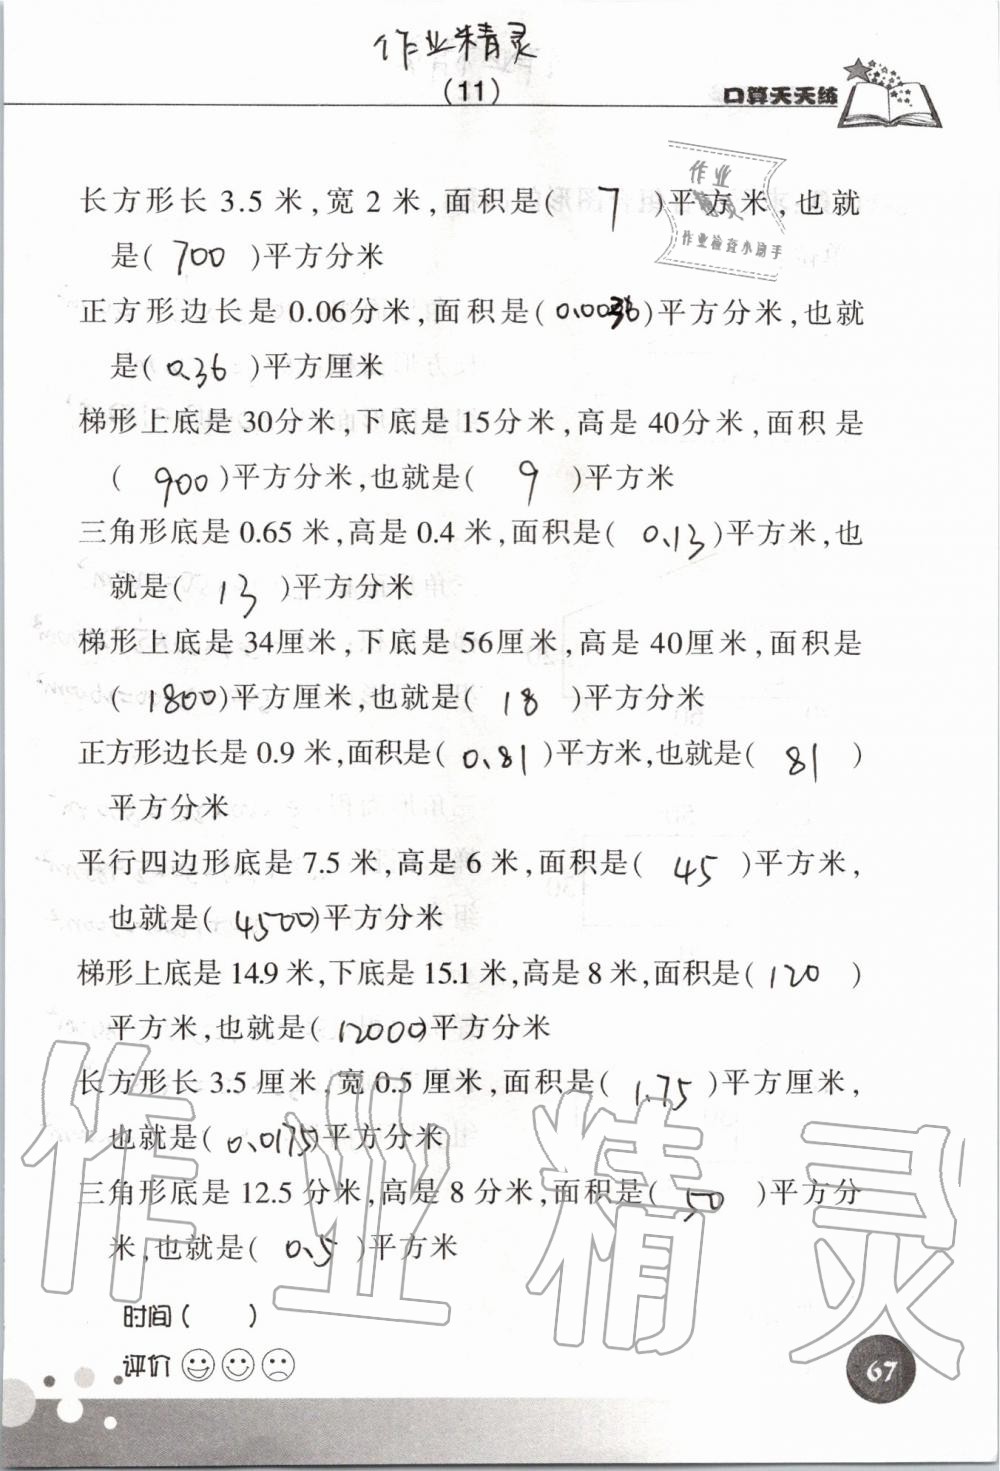 作业精灵
(11)
口算天天练
作业
精灵
作业检查小助手
长方形长 3.5 米,宽 2 米,面积是( 7 )平方米,也就
是( 700 )平方分米
正方形边长是 0.06分米,面积是( 0.0036 )平方分米,也就
是( 0.36 )平方厘米
梯形上底是 30分米,下底是 15分米,高是 40分米,面积是
( 900 )平方分米,也就是( 9 )平方米
三角形底是 0.65 米,高是 0.4 米,面积是( 0.13 )平方米,也
就是( 13 )平方分米
梯形上底是 34厘米,下底是 56厘米,高是 40厘米,面积是
( 1800 )平方厘米,也就是( 18 )平方分米
正方形边长是 0.9 米,面积是( 0.81 )平方米,也就是( 81 )
平方分米
平行四边形底是 7.5 米,高是 6 米,面积是( 45 )平方米,
也就是( 4500 )平方分米
梯形上底是 14.9 米,下底是 15.1 米,高是 8 米,面积是( 120 )
平方米,也就是( 12000 )平方分米
长方形长 3.5 厘米,宽 0.5 厘米,面积是( 1.75 )平方厘米,
也就是( 0.0175 )平方分米
三角形底是 12.5 分米,高是 8 分米,面积是( 50 )平方分
米,也就是( 0.5 )平方米
作业精灵
时间( )
评价
67